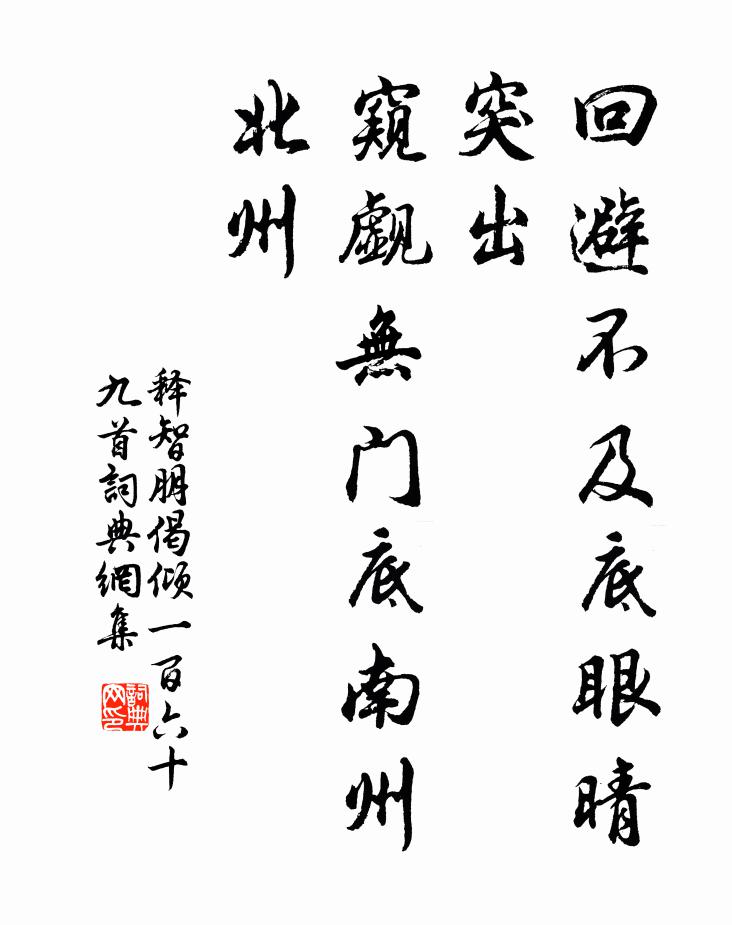 回避不及底眼晴
突出
窥觑無门底南州
北州
释智朋偈倾一百六十
九首詞典網集
詞典网印